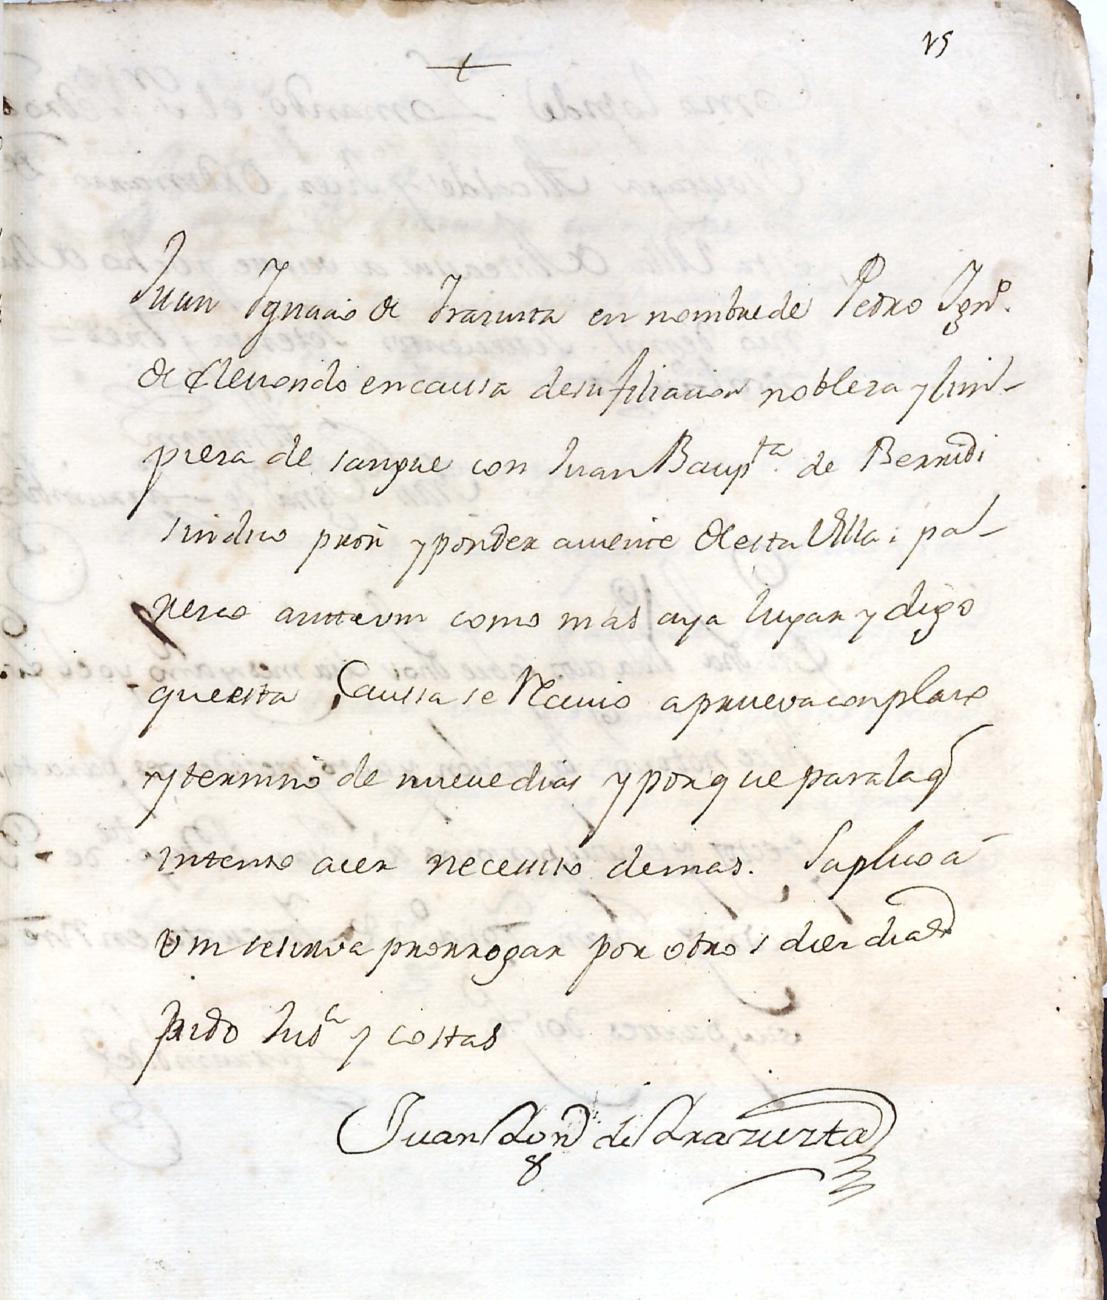 15
Juan Ygnacio de Irazusta en nombre de Pedro Ygnº.
de en caussa de su filiacion nobleza y lim-
pieza de sangue con Juan Bauptᵗᵃ. de Berridi
sindico proⁿ y ponder auiente de esta Villa: pa-
rezco ante vm como mas aya lugar y digo
que esta Caussa se Reciuio aprueva con plazo
y termino de nueue dias y porque para la q̄
intento acer necessito de mas. Suplico a
vm se sirva prorrogar por otros diez dias
pido Jusᵃ y costas
Juan Ygnº de Irazuzta